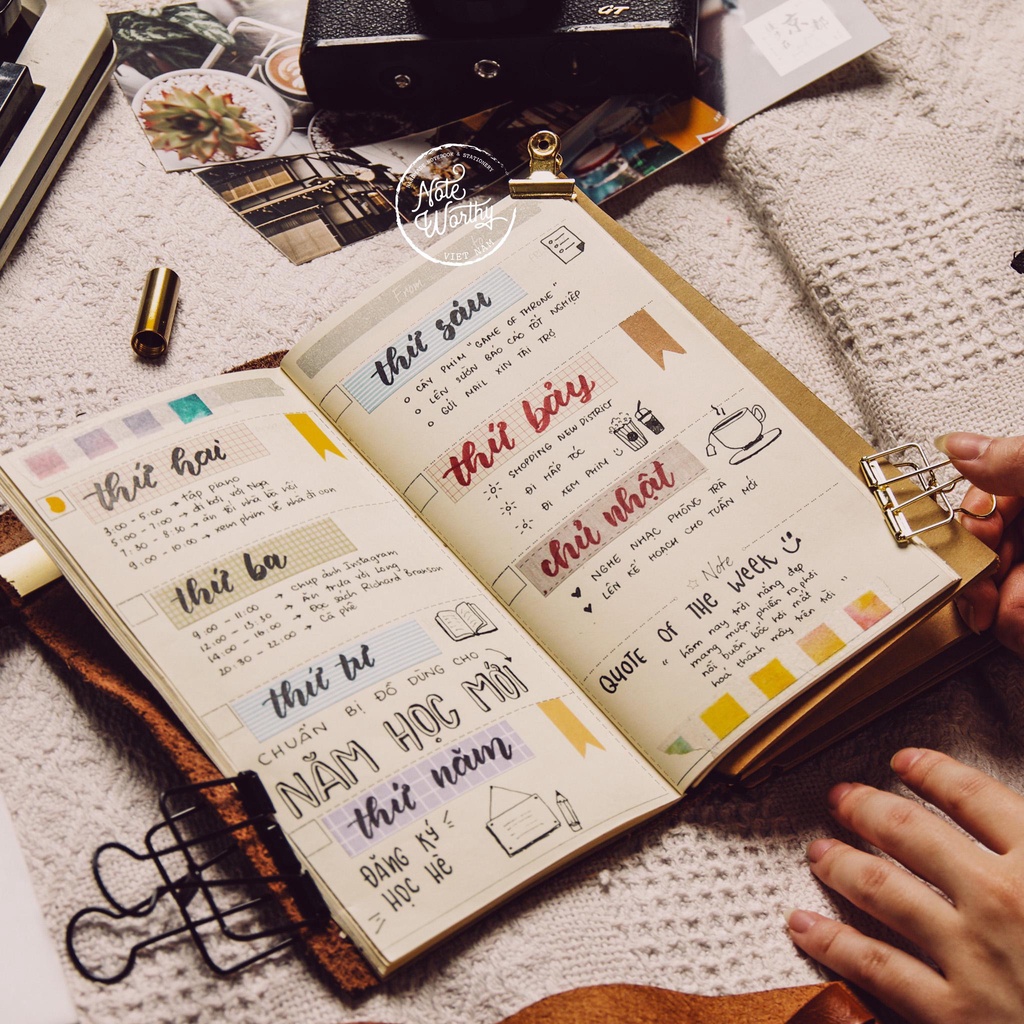 GT
京都
NOTEBOOK & STATIONERY
Note
Worthy
VIET NAM
thứ hai
3:00 - 5:00 → tập piano
5:00 - 7:00 → đi bơi với Nga
7:30 - 8:30 → ăn tối nhà bà nội
9:00 - 10:00 → xem phim về nhà đi con
thứ ba
9:00 - 11:00 → chụp ảnh Instagram
12:00 - 13:30 → Ăn trưa với Long
14:00 - 16:00 → Đọc sách Richard Branson
20:30 - 22:00 → Cà phê
thứ tư
CHUẨN BỊ ĐỒ DÙNG CHO
NĂM HỌC MỚI
thứ năm
ĐĂNG KÝ
HỌC HÈ
thứ sáu
CÀY PHIM "GAME OF THRONE"
LÊN SƯỜN BÁO CÁO TỐT NGHIỆP
GỬI MAIL XIN TÀI TRỢ
thứ bảy
SHOPPING NEW DISTRICT
ĐI HẤP TÓC
ĐI XEM PHIM
chủ nhật
NGHE NHẠC PHÒNG TRÀ
LÊN KẾ HOẠCH CHO TUẦN MỚI
Note
QUOTE of THE WEEK
"hôm nay trời nắng đẹp
mang muộn phiền ra phơi
nỗi buồn bốc hơi mất
hoá thành mây trên trời."